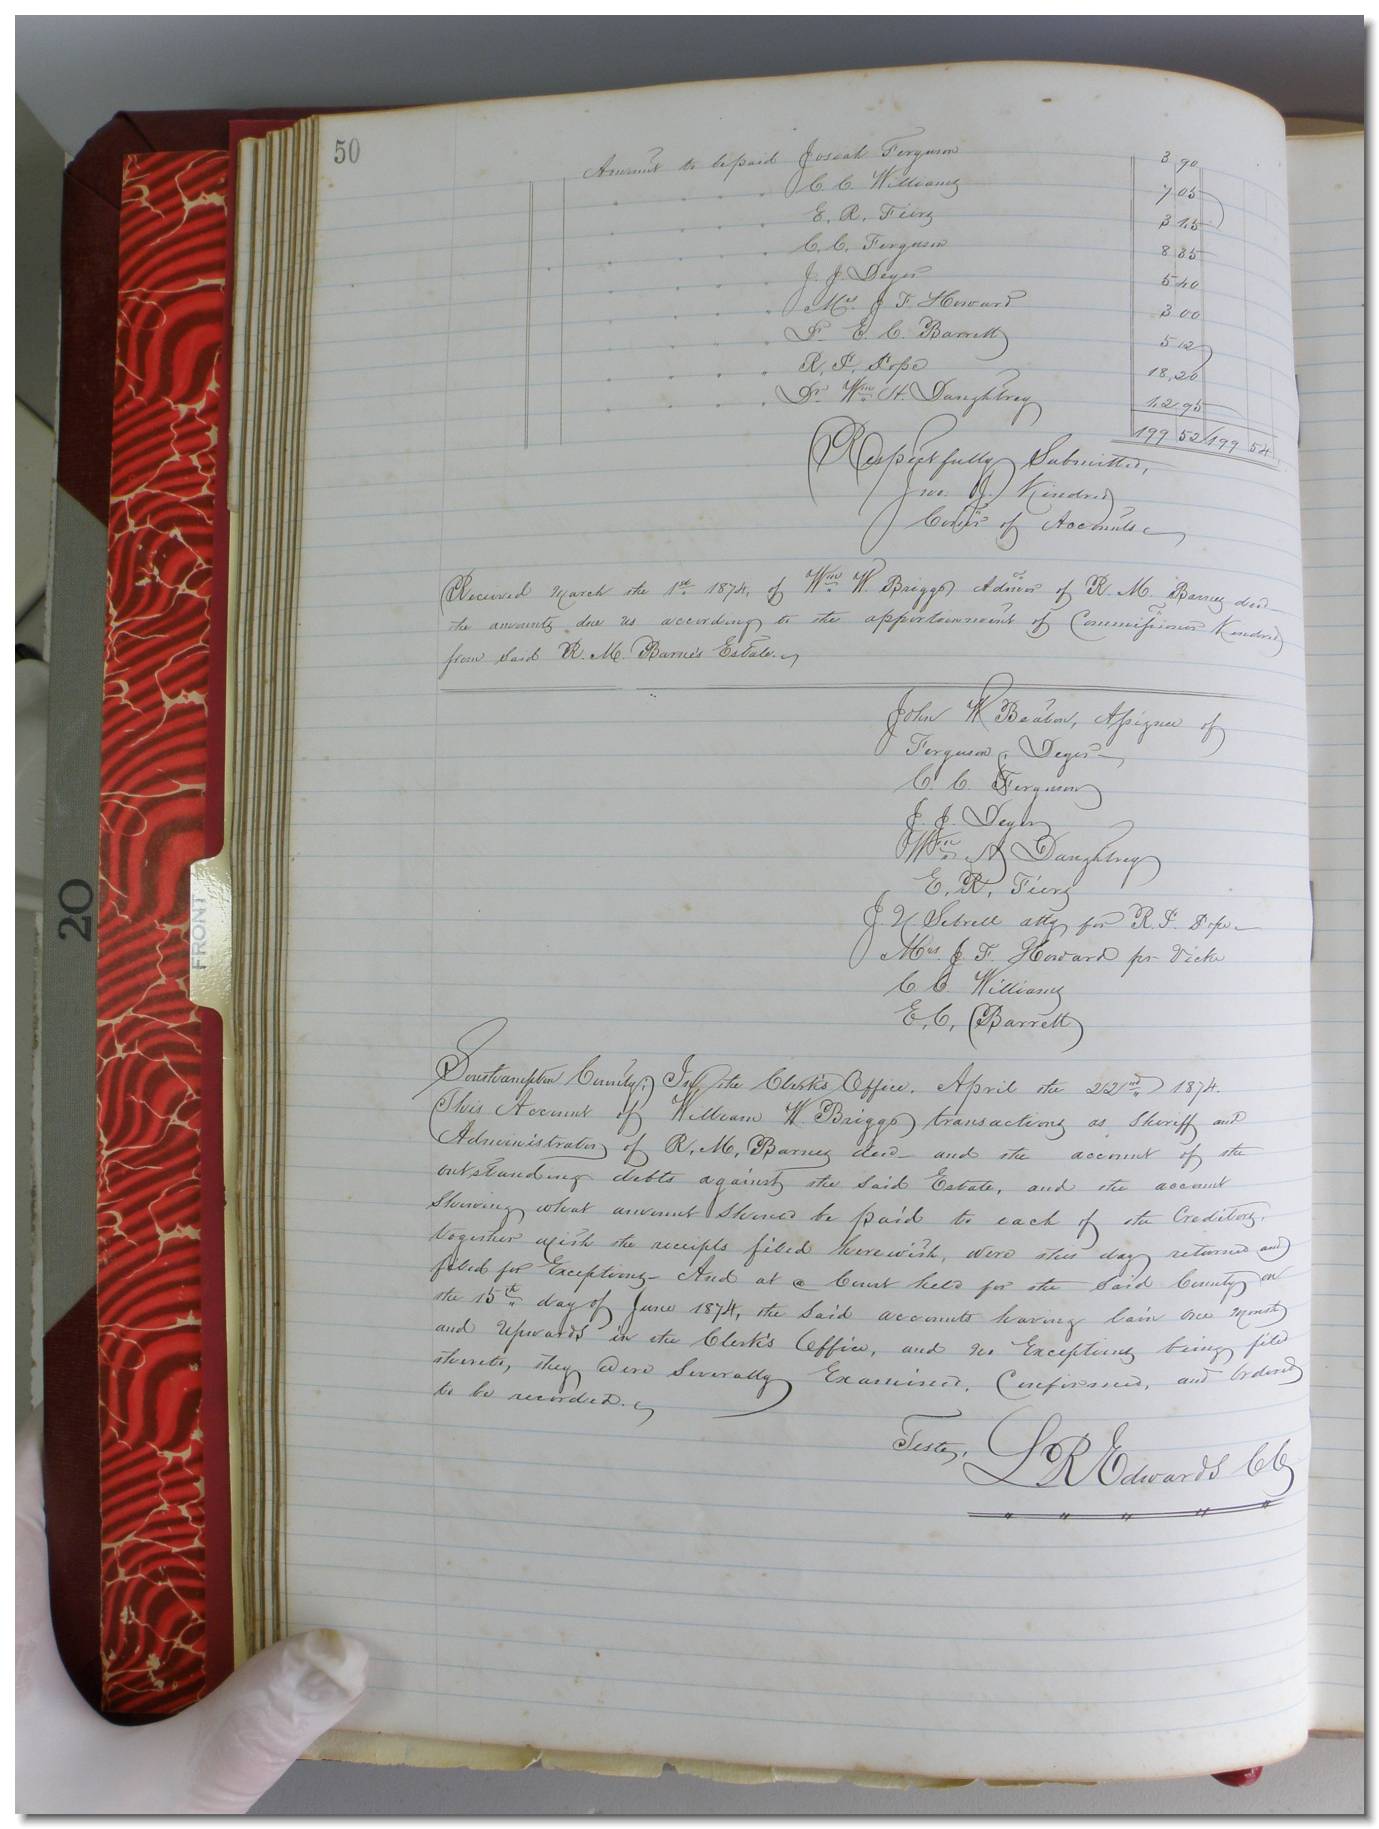 50
Amount to be paid Josiah Ferguson 3 90
" " " " C. C. Williams 7 05
" " " " E. R. Fiers 3 15
" " " " C. C. Ferguson 8 85
" " " " J. J. Deyer 5 40
" " " " Mrs J F Howard 3 00
" " " " Dr. E. C. Barrett 5 12
" " " " R. F. Pope 18,20
" " " " Dr Wm H. Daughtrey 12 95
199 52 199 52
Respectfully Submitted,
Jno. J. Kindred
Comr of Accounts
Received March the 1st 1874, of Wm W Briggs Admor of R. M. Barnes decd
the amounts due us according to the apportionment of Commissioner Kindred
from said R. M. Barnes Estate.
John W Beaton, Assignee of
Ferguson & Deyer
C. C. Ferguson
J. J. Deyer
Wm H Daughtrey
E. R. Fiers
J U Sebrell atty for R. F. Pope
Mrs. J. F. Howard pr Dick
C. C. Williams
E. C. Barrett
Southampton County; In the Clerk's Office. April the 22nd 1874.
This Account of William W. Briggs transactions as Sheriff and
Administrator of R. M. Barnes decd and the account of the
outstanding debts against the said Estate, and the account
showing what amount should be paid to each of the Creditors.
together with the receipts filed herewith, were this day returned and
filed for Exceptions And at a Court held for the said County on
the 15th day of June 1874, the said accounts having lain one month
and upwards in the Clerk's Office, and no Exceptions being filed
thereto, they were severally Examined, Confirmed, and Ordered
to be recorded.
Teste,
L R Edwards CC
20
FRONT